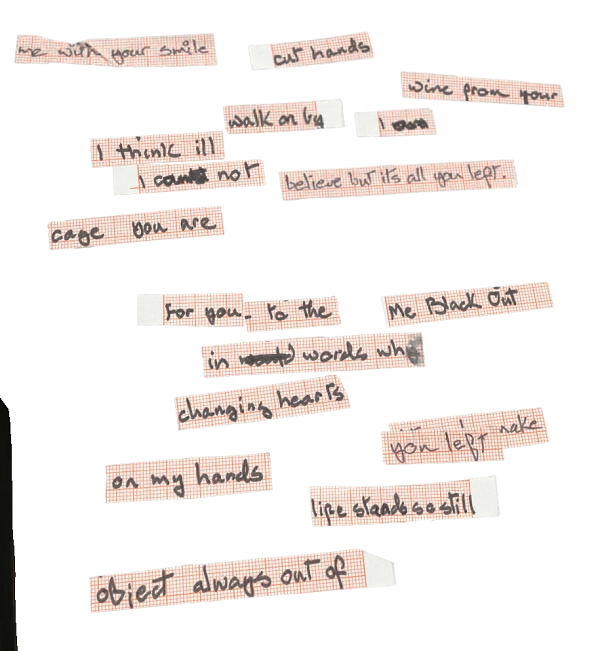 me with your smile
cut hands
wine from your
walk on by
I
I think ill
I not
believe but its all you left.
cage you are
For you.
to the
Me Black Out
in words wh
changing hearts
you left
make
on my hands
life stands so still
object always out of